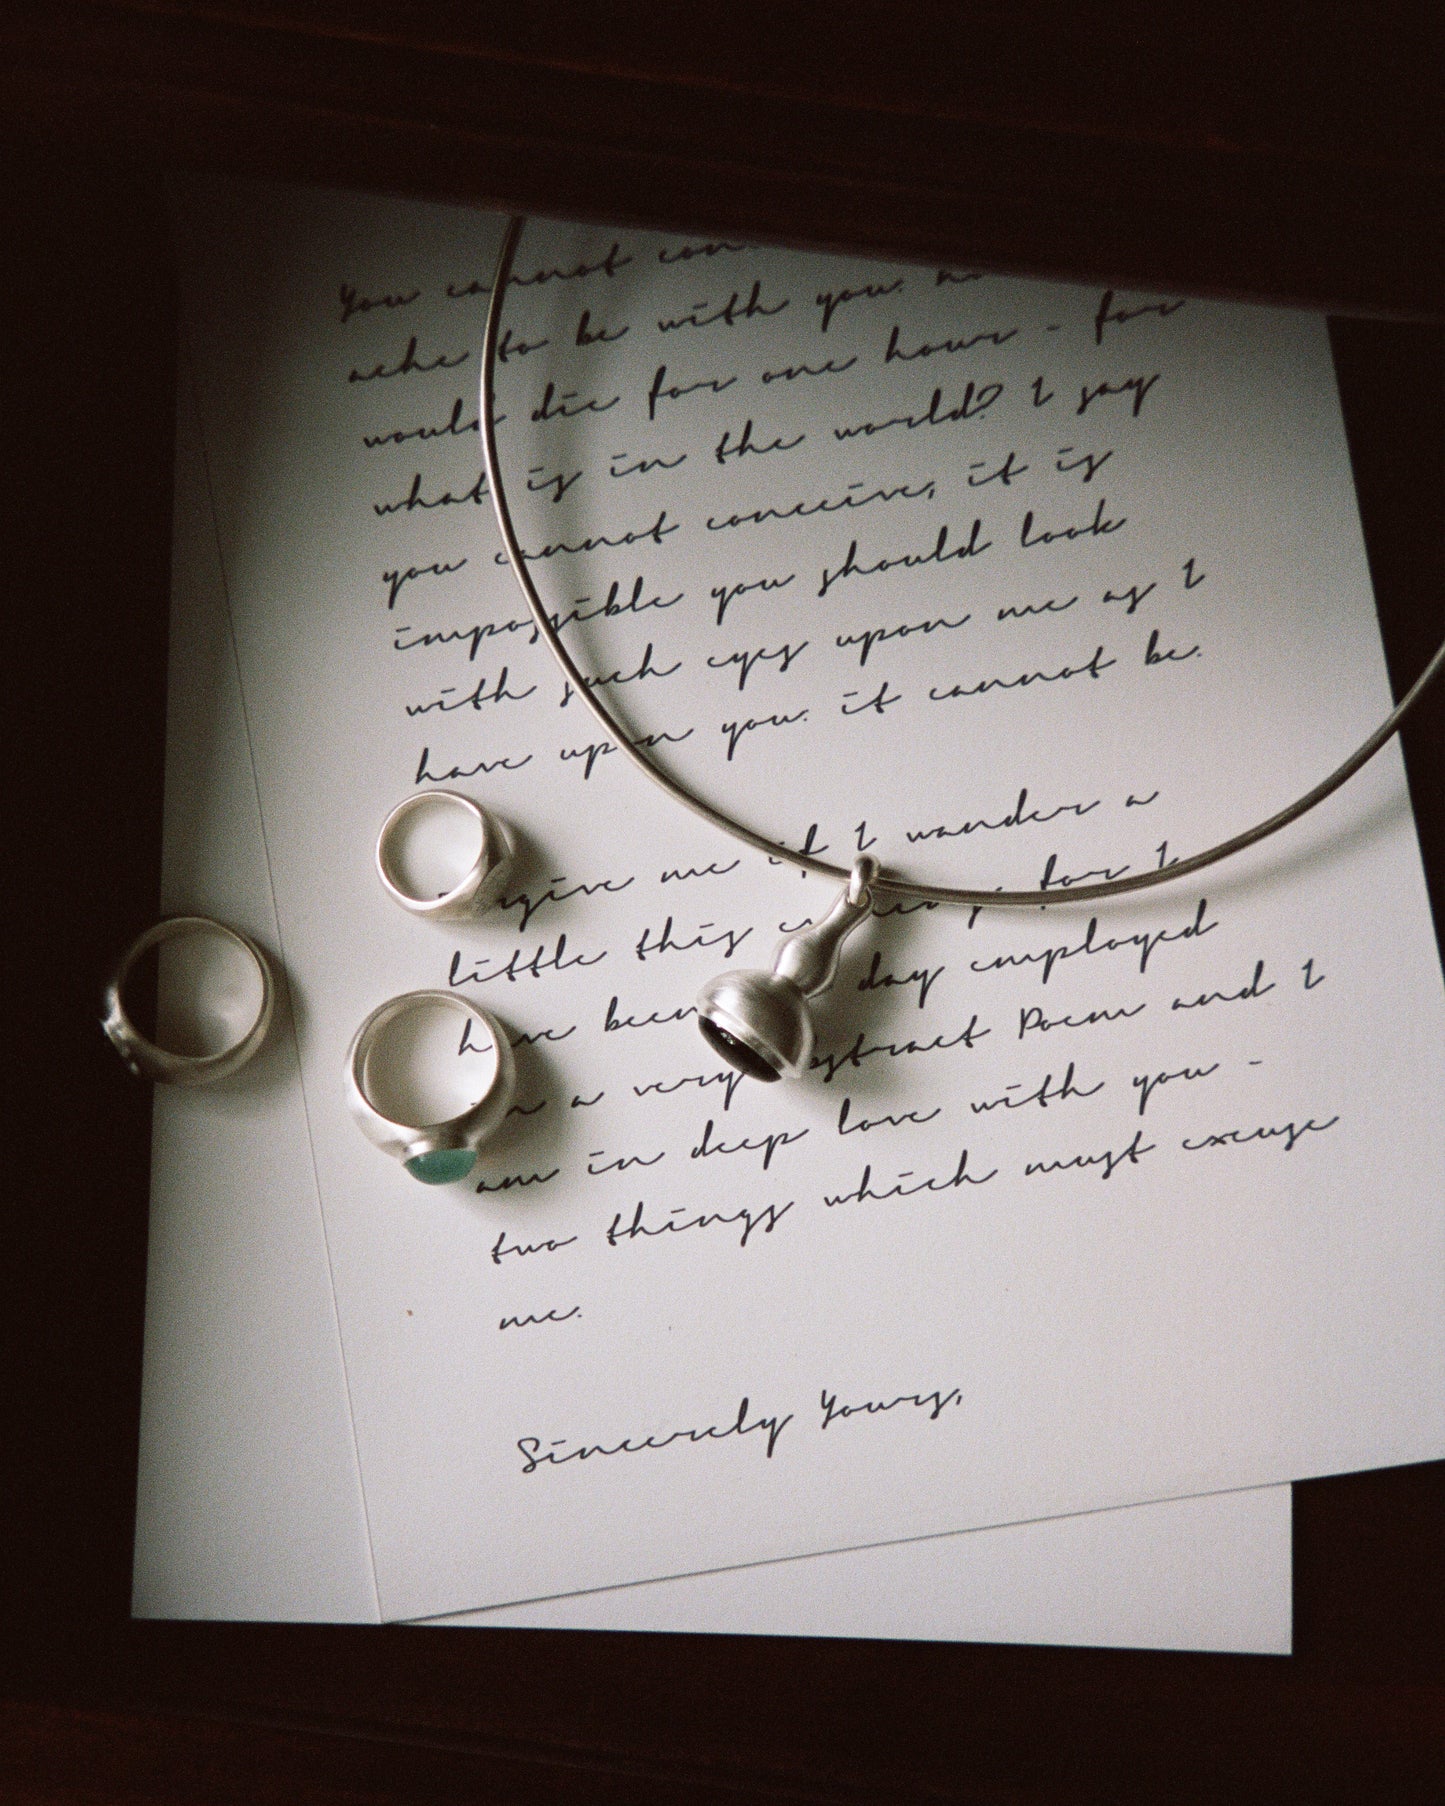 You cannot
ache to be with you.
would die for one hour - for
what is in the world? I say
you cannot conceive, it is
impossible you should look
with such eyes upon me as I
have upon you. it cannot be.
me if I wander a
little this for I
have been day employed
a very abstract Poem and I
am in deep love with you -
two things which must excuse
me.
Sincerely Yours,